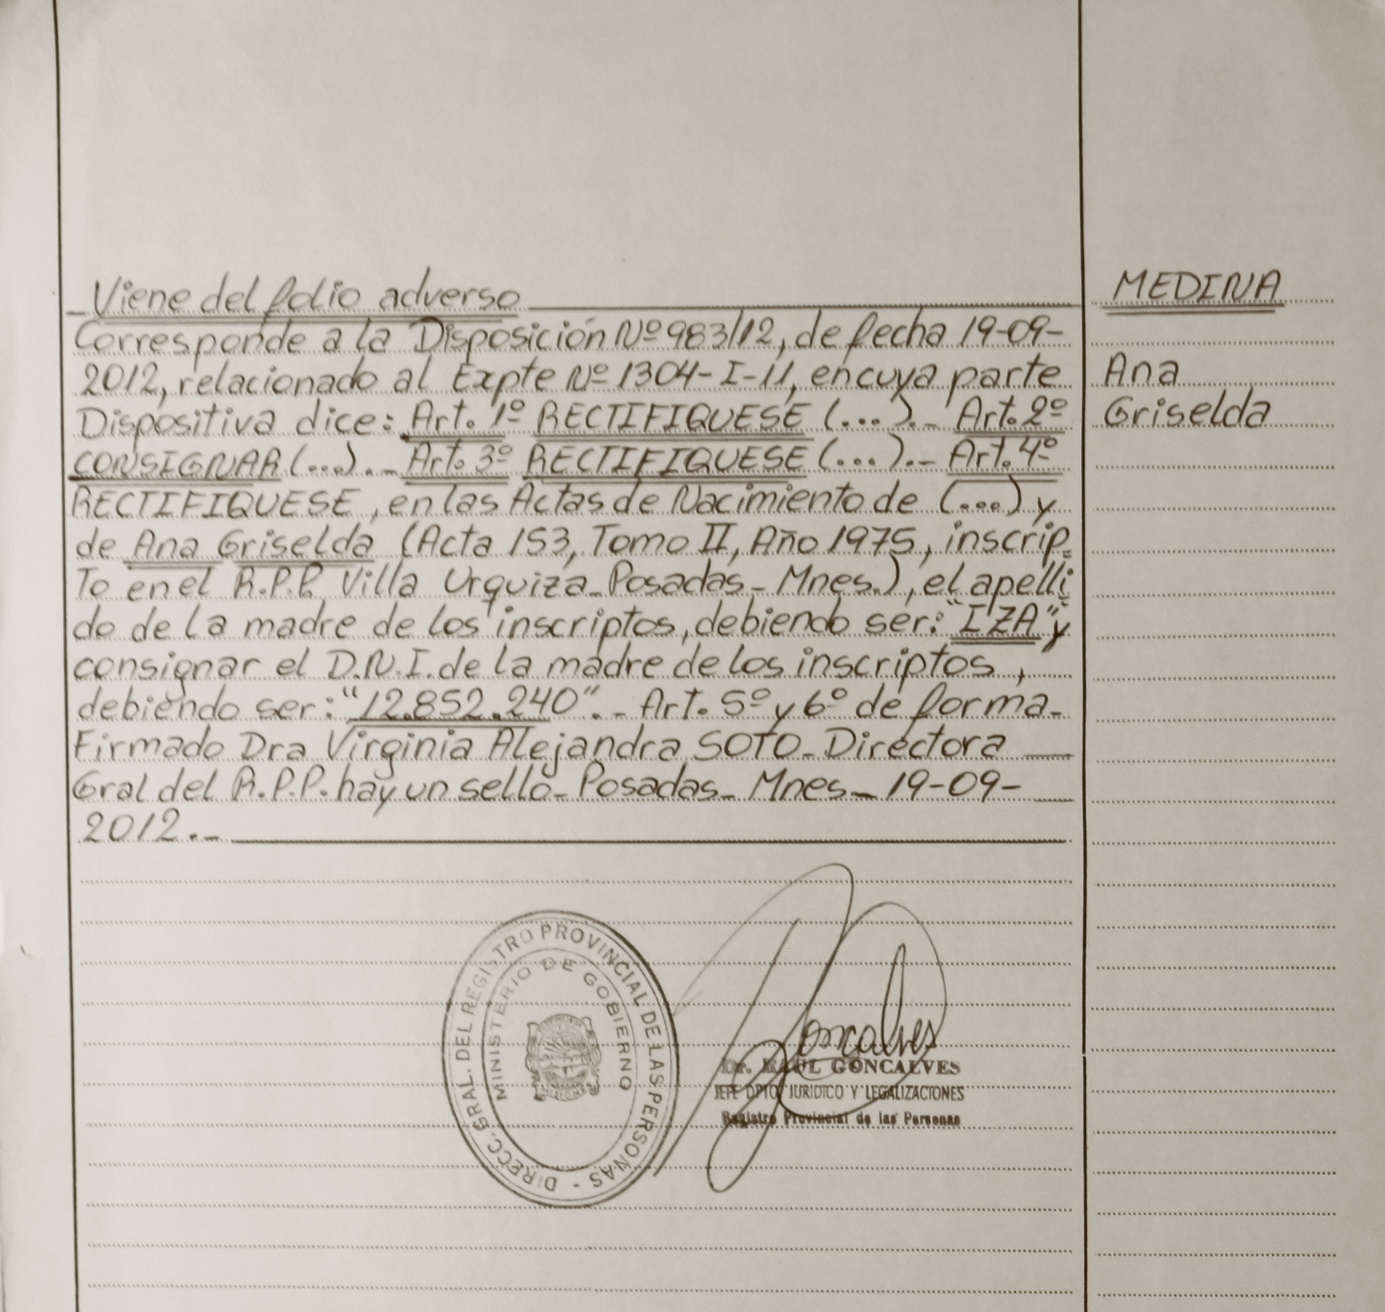 Viene del folio adverso
Corresponde a la Disposición Nº 983/12, de fecha 19-09-
2012, relacionado al Expte Nº 1304-I-11, en cuya parte
Dispositiva dice: Art. 1º RECTIFIQUESE (...)._ Art. 2º
CONSIGNAR (...)._ Art. 3º RECTIFIQUESE (...)._ Art. 4º
RECTIFIQUESE, en las Actas de Nacimiento de (...) y
de Ana Griselda (Acta 153, Tomo II, Año 1975, inscrip-
to en el R.P.P. Villa Urquiza_Posadas_Mnes.), el apelli
do de la madre de los inscriptos, debiendo ser: "IZA" y
consignar el D.N.I. de la madre de los inscriptos,
debiendo ser: "12.852.240"._ Art. 5º y 6º de forma_
Firmado Dra Virginia Alejandra SOTO_Directora
Gral del R.P.P. hay un sello_Posadas_Mnes_19-09-
2012._
MEDINA
Ana
Griselda
DIRECC. GRAL. DEL REGISTRO PROVINCIAL DE LAS PERSONAS -
MINISTERIO DE GOBIERNO
Goncalves
Dr. RAUL GONCALVES
JEFE DPTO. JURIDICO Y LEGALIZACIONES
Registro Provincial de las Personas